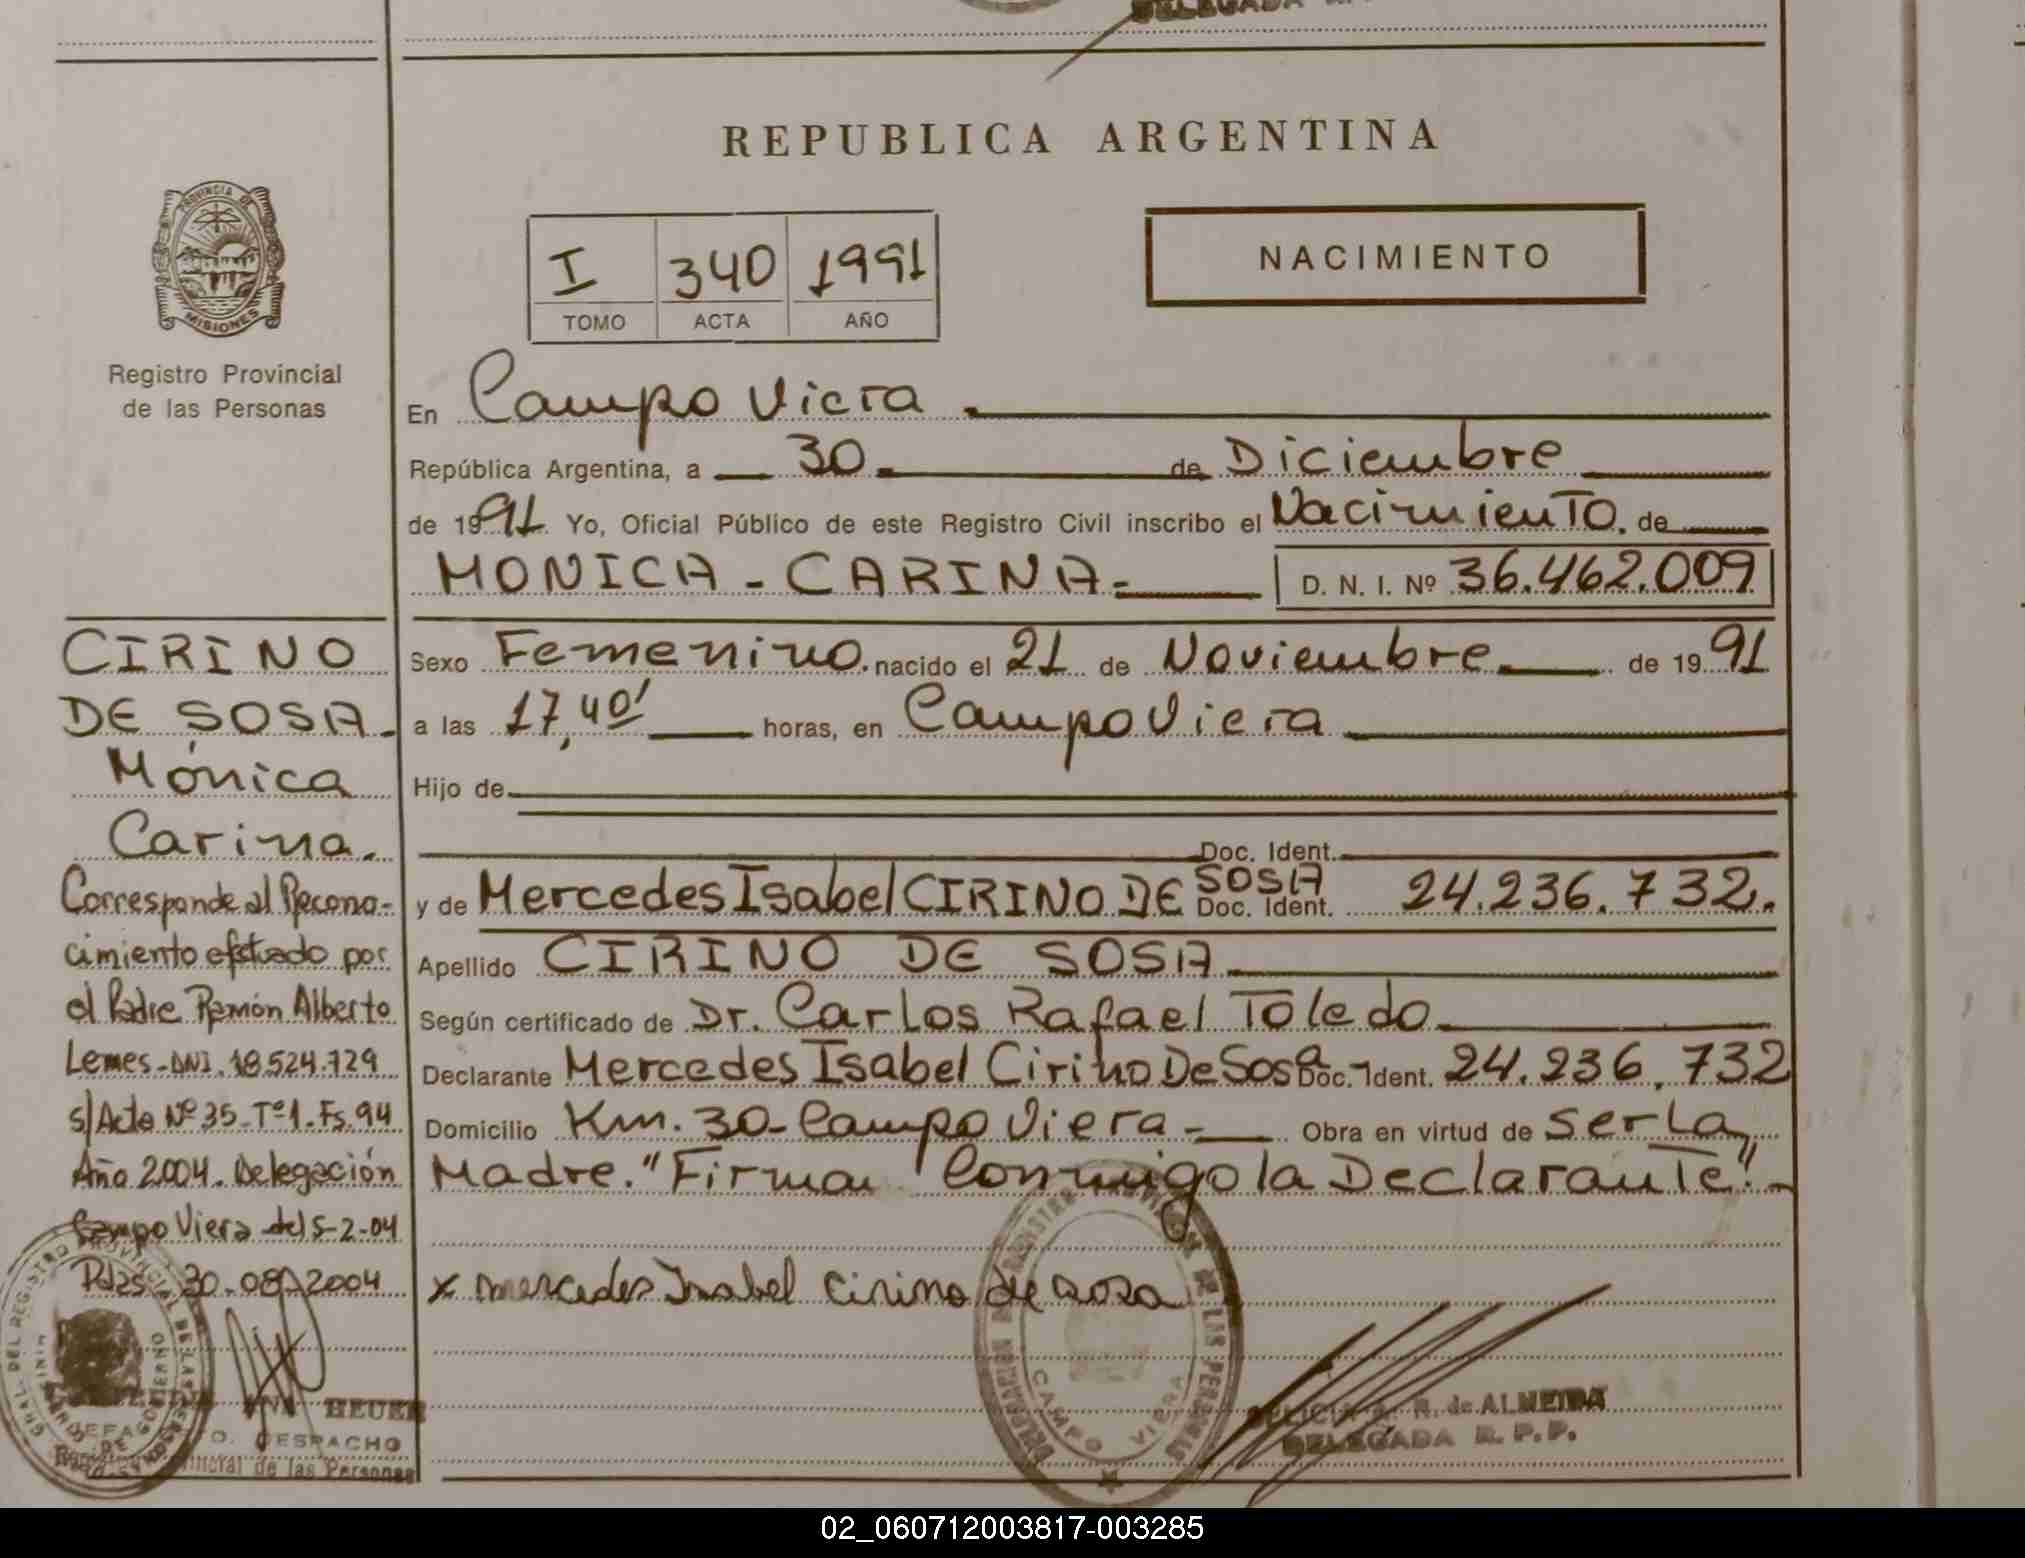 REPUBLICA ARGENTINA
PROVINCIA DE
MISIONES
Registro Provincial
de las Personas
I 340 1991
TOMO ACTA AÑO
NACIMIENTO
En Campo Viera
República Argentina, a 30 de Diciembre
de 1991 Yo, Oficial Público de este Registro Civil inscribo el Nacimiento. de
MONICA - CARINA - D. N. I. Nº 36.462.009
Sexo Femenino. nacido el 21 de Noviembre de 1991
a las 17,40' horas, en Campo Viera
Hijo de
Doc. Ident.
y de Mercedes Isabel CIRINO DE SOSA Doc. Ident. 24.236.732.
Apellido CIRINO DE SOSA
Según certificado de Dr. Carlos Rafael Toledo
Declarante Mercedes Isabel Cirino De Sosa Doc. Ident. 24.236.732
Domicilio Km. 30 - Campo Viera - Obra en virtud de ser La
Madre. "Firma Conmigo la Declarante". -
x mercedes Isabel Cirino de sosa
CAMPO VIERA
R. de ALMEIDA
DELEGADA R. P. P.
CIRINO
DE SOSA -
Mónica
Carina.
Corresponde al Recono-
cimiento efectuado por
el Padre Ramón Alberto
Lemes - DNI. 18.524.729
s/Acta Nº 35 - Tº 1 - Fs. 94
Año 2004. Delegación
Campo Viera del 5-2-04
Pdas 30-08-2004
ANA HEUER
DESPACHO
de las Personas
02_060712003817-003285